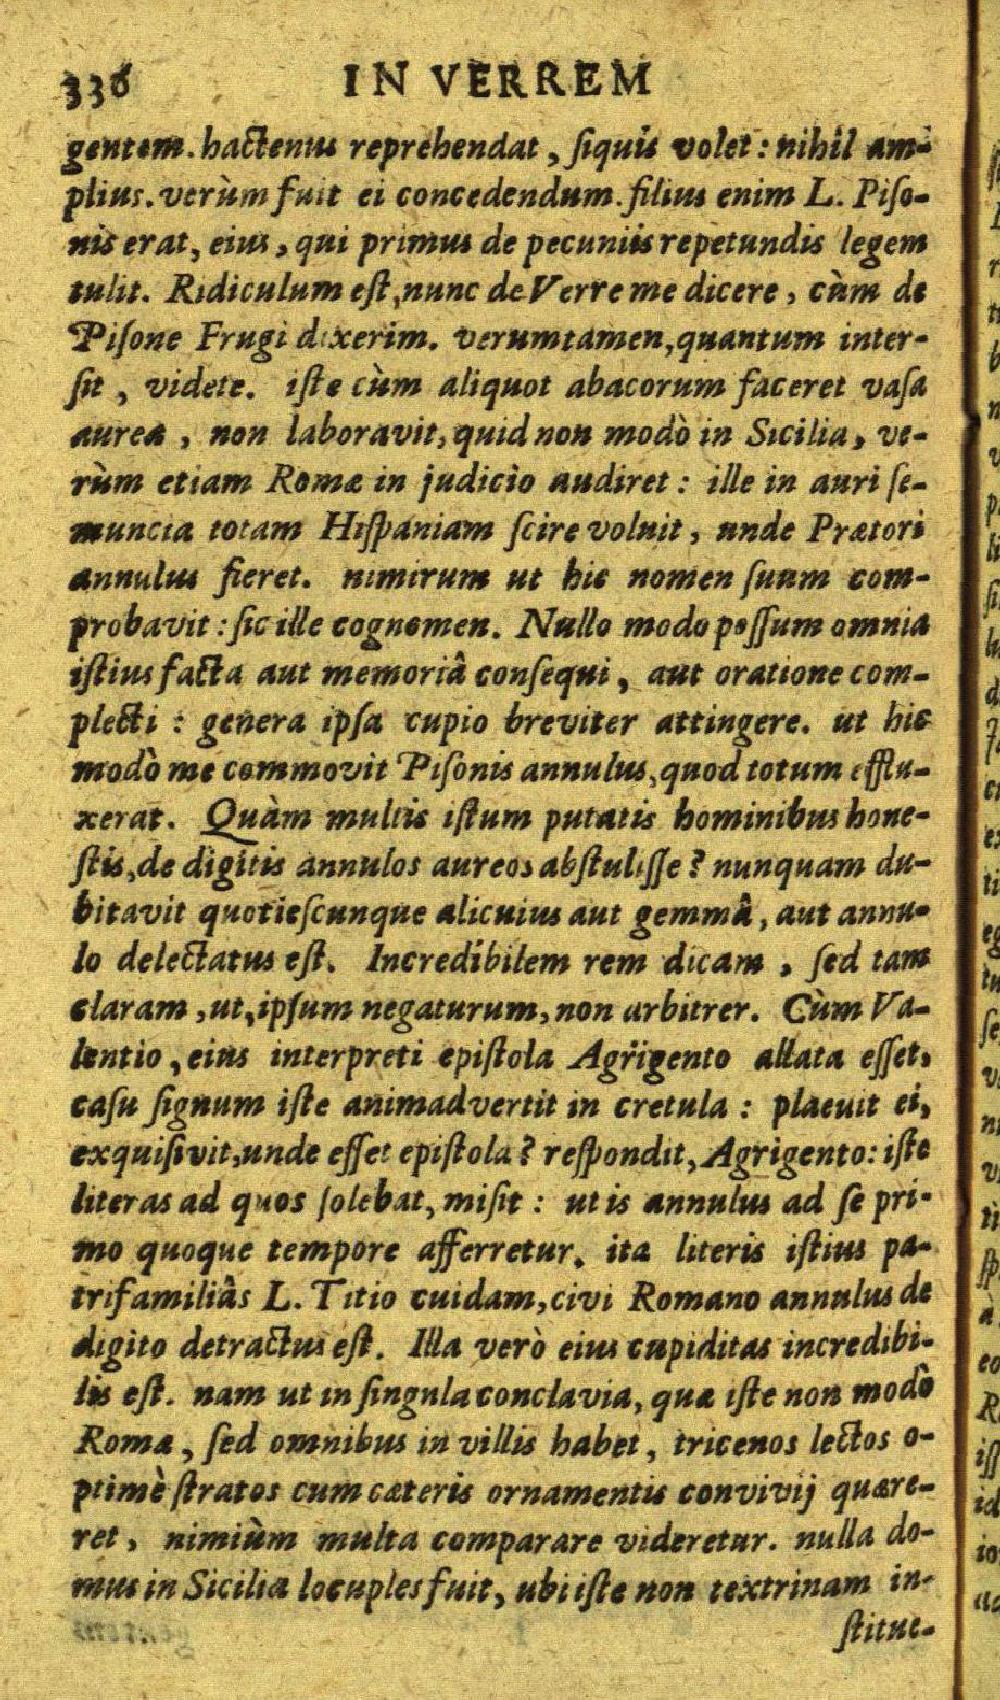 336 IN VERREM
gentem. hactenus reprehendat, siquis volet: nihil am-
plius. verùm fuit ei concedendum. filius enim L. Piso-
nis erat, eius, qui primus de pecuniis repetundis legem
tulit. Ridiculum est, nunc de Verre me dicere, cùm de
Pisone Frugi dixerim. verumtamen, quantum inter-
sit, videte. iste cùm aliquot abacorum faceret vasa
aurea, non laboravit, quid non modò in Sicilia, ve-
rùm etiam Romæ in judicio audiret: ille in auri se-
muncia totam Hispaniam scire voluit, unde Prætori
annulus fieret. nimirum ut hic nomen suum com-
probavit: sic ille cognomen. Nullo modo possum omnia
istius facta aut memoriâ consequi, aut oratione com-
plecti: genera ipsa cupio breviter attingere. ut hic
modò me commovit Pisonis annulus, quod totum efflu-
xerat. Quàm multis istum putatis hominibus hone-
stis, de digitis annulos aureos abstulisse? nunquam du-
bitavit quotiescunque alicuius aut gemmâ, aut annu-
lo delectatus est. Incredibilem rem dicam, sed tam
claram, ut, ipsum negaturum, non arbitrer. Cùm Va-
lentio, eius interpreti epistola Agrigento allata esset,
casu signum iste animadvertit in cretula: placuit ei,
exquisivit, unde esset epistola? respondit, Agrigento: iste
literas ad quos solebat, misit: ut is annulus ad se pri-
mo quoque tempore afferretur. ita literis istius pa-
trifamiliâs L. Titio cuidam, civi Romano annulus de
digito detractus est. Illa verò eius cupiditas incredibi-
lis est. nam ut in singula conclavia, quæ iste non modò
Romæ, sed omnibus in villis habet, tricenos lectos o-
ptimè stratos cum cæteris ornamentis convivij quære-
ret, nimiùm multa comparare videretur. nulla do-
mus in Sicilia locuples fuit, ubi iste non textrinam in-
stitue-